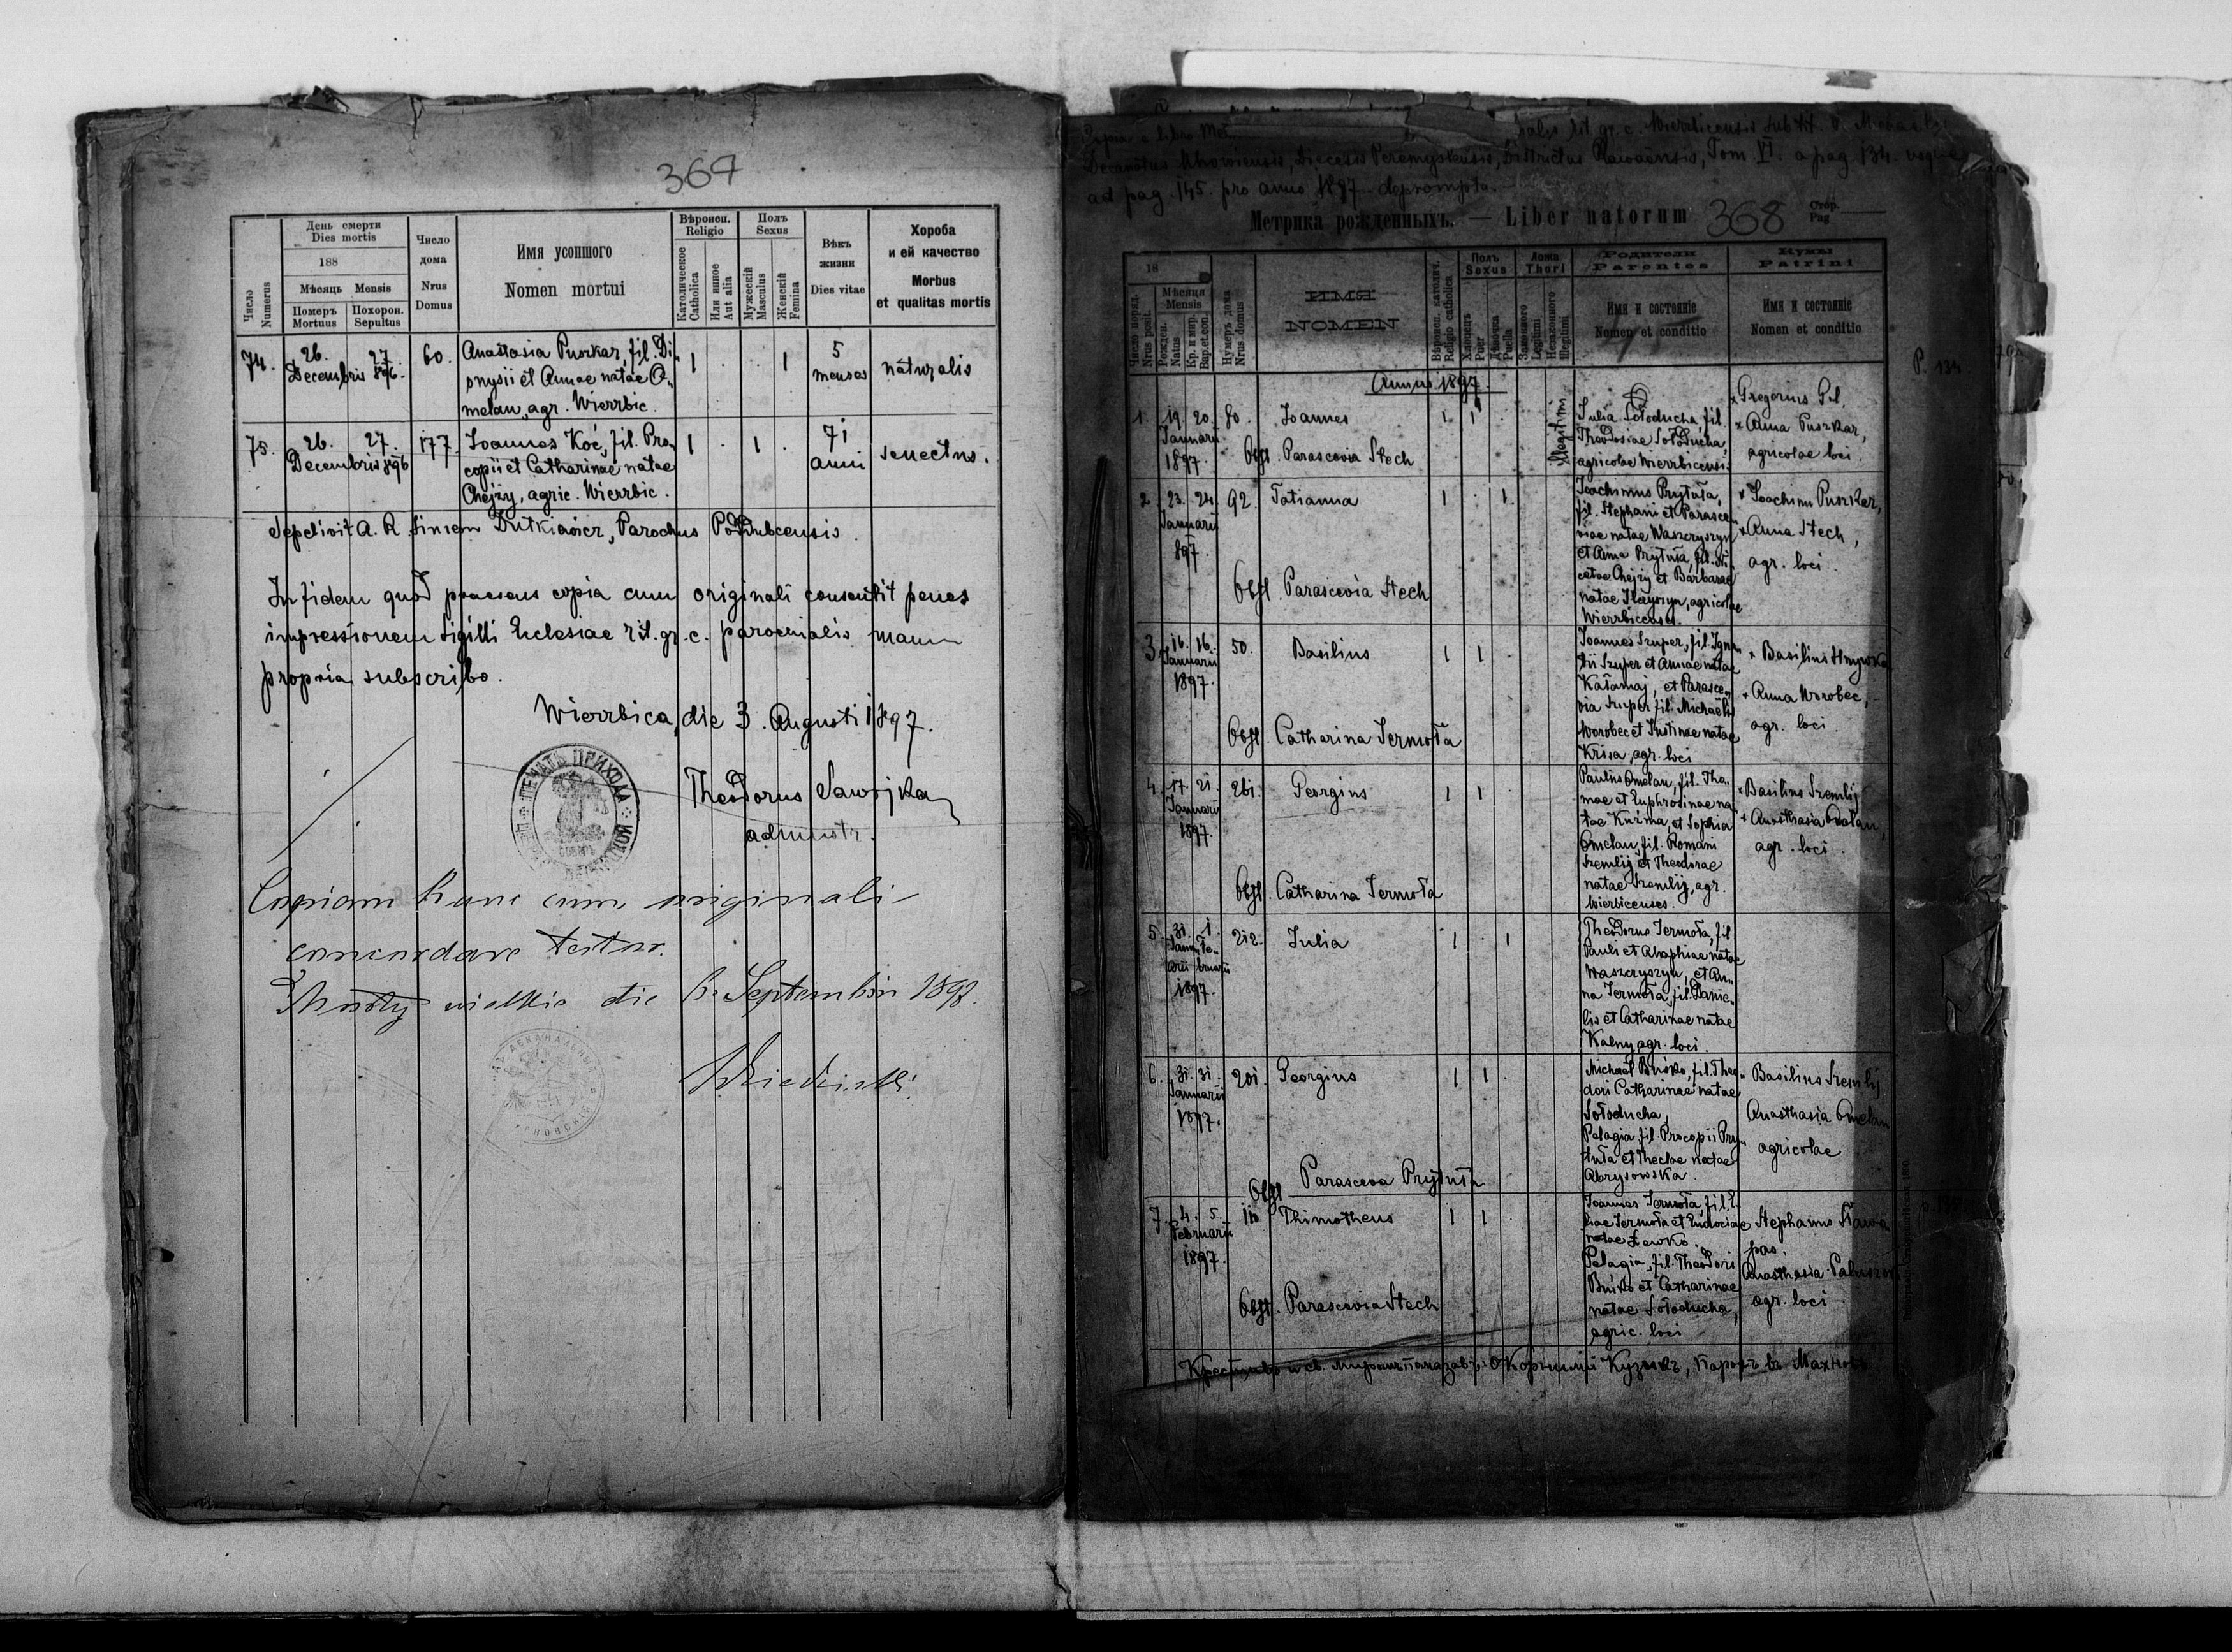 367
Число Numerus
День смерти Dies mortis
188
Мѣсяць Mensis
Померъ Mortuus
Похорон. Sepultus
Число дома Nrus Domus
Имя усопшого Nomen mortui
Вѣроисп. Religio
Католическое Catholica
Или инное Aut alia
Полъ Sexus
Мужескій Masculus
Женскій Femina
Вѣкъ жизни Dies vitae
Хороба и ей качество Morbus et qualitas mortis
74. 26. 27. Decembris 896. 60. Anastasia Puszkar, fil. Di- 1 . . 1 5 menses naturalis
onysii et Annae natae O-
melan, agr. Wierzbic.
75. 26. 27. Decembris 896 177. Joannes Koć, fil. Pro- 1 . 1 . 71 anni senectus.
copii et Catharinae natae
Chejzy, agric. Wierzbic.
Sepelivit A. R. Simeon Dutkiewicz, Parochus Poddubcensis.
In fidem quod praesens copia cum originali consentit penes
impressionem sigilli Ecclesiae rit. gr. c. parochialis manu
propria subscribo.
Wierzbica, die 3. Augusti 1897.
ПЕЧАТЬ ПРИХОДА
Theodorus Sawojka
administr.
Copiam hanc cum originali
concordare testor.
Mosty wielkie die 6. Septembris 1898.
Decanatus Uhnowiensis, Diecesis Peremysliensis, Districtus Rawaensis, Tom VI. a pag 134. usque
ad pag. 145. pro anno 1897 deprompta.
Метрика рожденныхъ. — Liber natorum 368 Стор. Pag.
18
Число поряд. Nrus posit.
Мѣсяця Mensis
Рожден. Natus
Кр. и мир. Bap. et con.
Нумеръ дома Nrus domus
ИМЯ NOMEN
Вѣроисп. католич. Religio catholica
Полъ Sexus
Хлопецъ Puer
Дѣвочка Puella
Ложа Thori
Законного Legitimi
Незаконного Illegitimi
Родители Parentes
Имя и состояніе Nomen et conditio
Кумы Patrini
Имя и состояніе Nomen et conditio
P. 134
Annus 1897.
1. 19. 20. Januarii 1897. 80. Joannes 1 1 Illegitimi
Obst. Parascevia Stech
Julia Sołoducha, fil.
Theodosiae Sołoducha,
agricolae Wierzbicensis.
Gregorius Gil,
Anna Puszkar,
agricolae loci.
2. 23. 24. Januarii 897. 92. Tatianna 1 . 1.
Obst. Parascevia Stech
Joachimus Prytuła,
fil. Stephani et Parasce-
viae natae Waszczyszyn
et Anna Prytuła, fil. Ni-
cetae Chejzy et Barbarae
natae Ilczyszyn, agricolae
Wierzbicenses.
Joachim Puszkar,
Anna Stech,
agr. loci.
3. 16. 16. Januarii 1897. 50. Basilius 1 1
Obst. Catharina Jermoła
Joannes Szuper, fil. Igna-
tii Szuper et Annae natae
Kałamaj, et Parasce-
via Szuper fil. Michaelis
Worobec et Justinae natae
Krisa, agr. loci
Basilius
Anna Worobec,
agr. loci.
4. 17. 21. Januarii 1897. 261. Georgius 1 1
Obst. Catharina Jermoła
Paulus Omelan, fil. Tho-
mae et Euphrosinae na-
tae Kuzma, et Sophia
Omelan, fil. Romani
Szemlij et Theodorae
natae Szemlij, agr.
Wierbicenses.
Basilius Szemlij
Anasthasia Omelan,
agr. loci.
5. 31. 1. Januarii Februarii 1897. 212. Julia 1 . 1
Theodorus Jermoła, fil.
Pauli et Ahaphiae natae
Waszczyszyn, et An-
na Jermoła, fil. Danie-
lis et Catharinae natae
Kalny agr. loci.
6. 31. 31. Januarii 1897. 201. Georgius 1 1
Obst. Parasceva Prytuła
Michael Buśko, fil. Theo-
dori Catharinae natae
Sołoducha,
Pelagia, fil. Procopii Pry-
tuła et Theclae natae
Abrysowska.
Basilius Szemlij
Anasthasia Omelan
agricolae
7. 4. 5. Februarii 1897. Thimotheus 1 1
Obst. Parascevia Stech
Joannes Jermoła, fil. E-
liae Jermoła et Eudociae
natae Lewko.
Pelagia, fil. Theodori
Buśko et Catharinae
natae Sołoducha,
agric. loci
Stephanus
Anasthasia
agr. loci